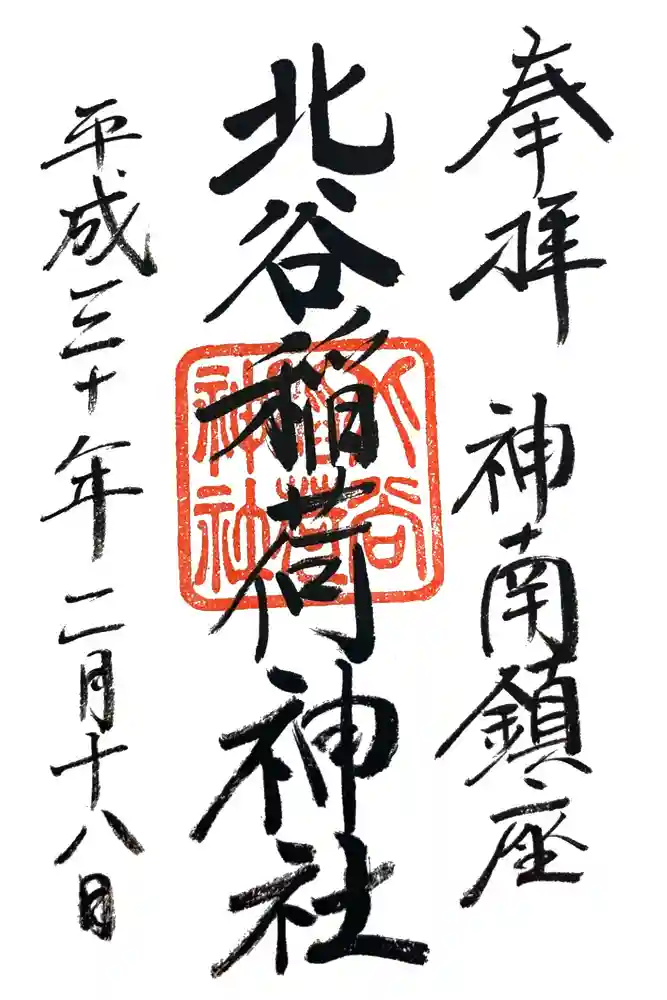 奉拝　神南鎮座
北谷稲荷神社
平成三十年二月十八日
北谷
稲荷
神社